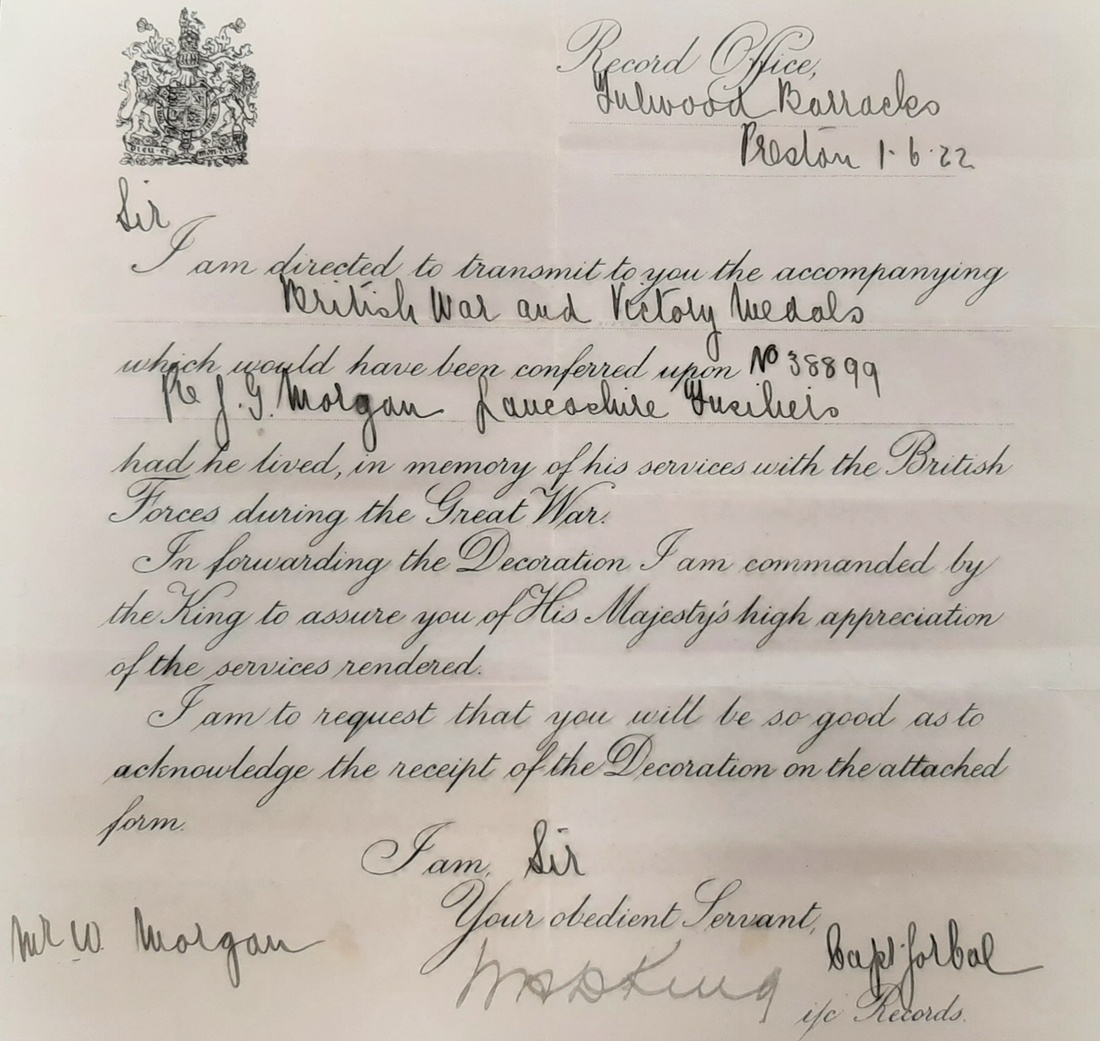 Record Office,
Fulwood Barracks
Preston 1·6·22
DIEU ET MON DROIT
Sir
I am directed to transmit to you the accompanying
British War and Victory Medals
which would have been conferred upon No 38899
Pte J. G. Morgan Lancashire Fusiliers
had he lived, in memory of his services with the British
Forces during the Great War.
In forwarding the Decoration I am commanded by
the King to assure you of His Majesty's high appreciation
of the services rendered.
I am to request that you will be so good as to
acknowledge the receipt of the Decoration on the attached
form.
I am, Sir
Your obedient Servant,
Mr W. Morgan
King Capt for Col
i/c Records.